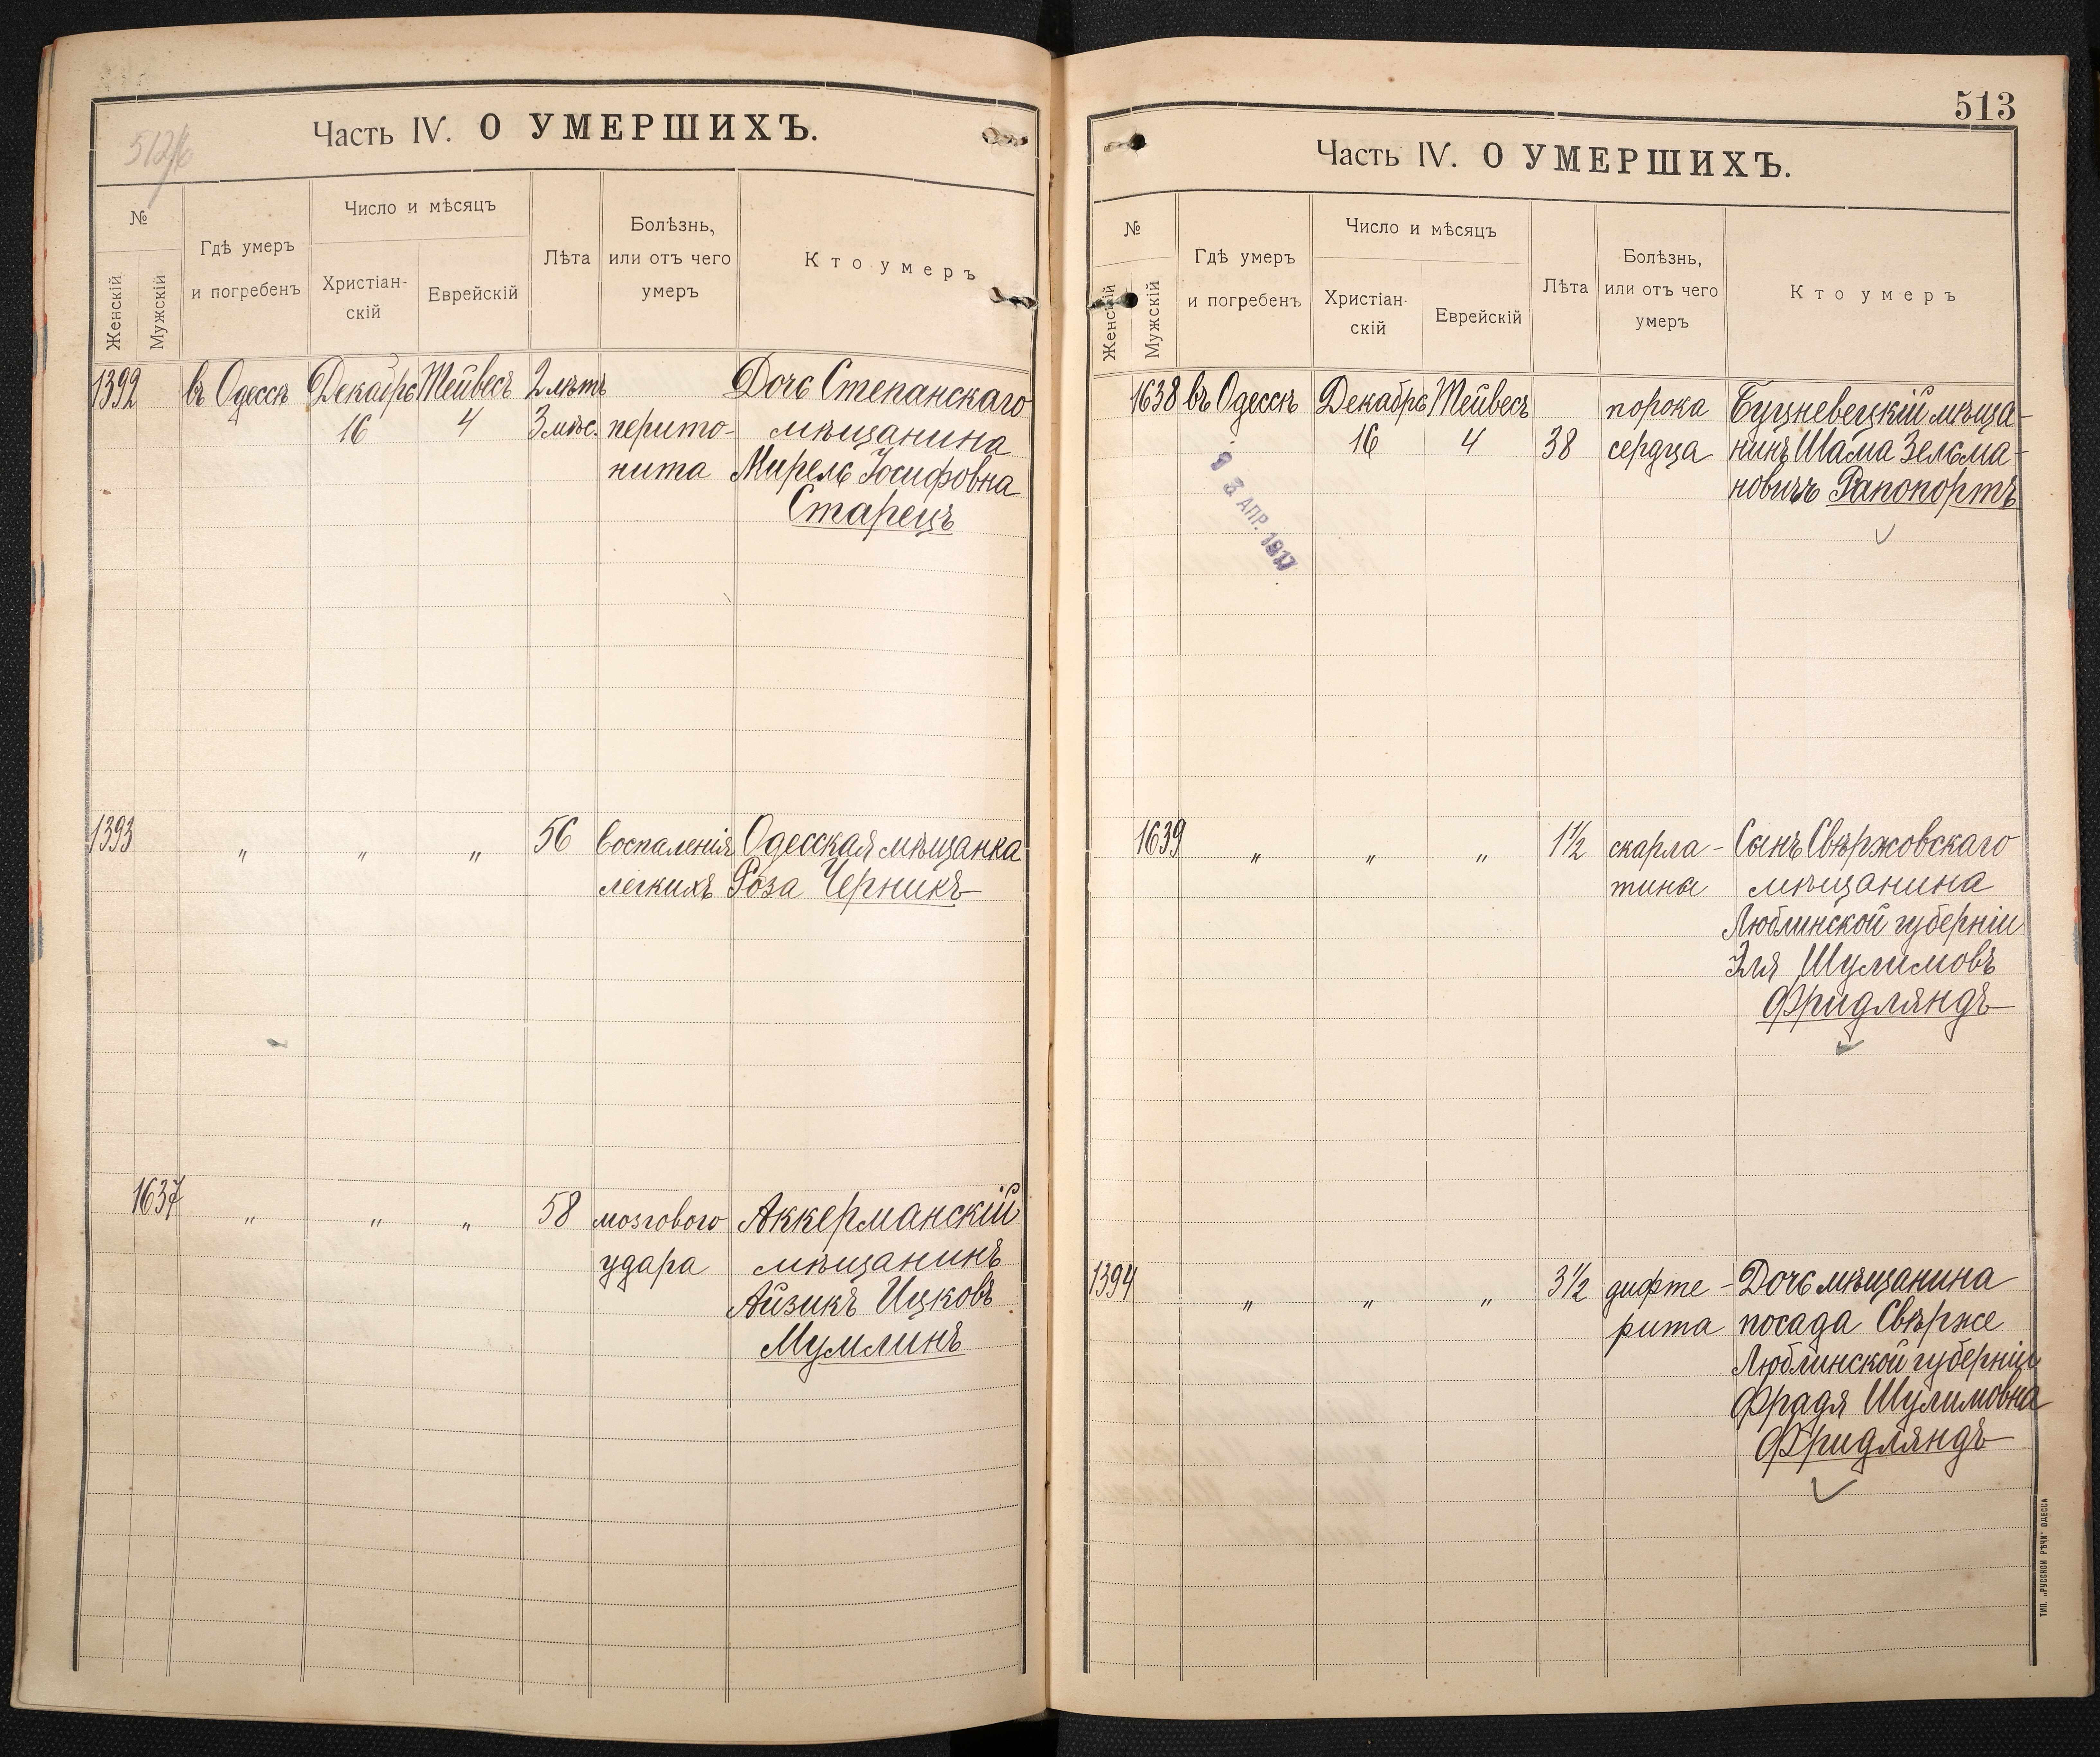 512/б
Часть IV. О УМЕРШИХЪ.
№
Женскій
Мужскій
Гдѣ умеръ
и погребенъ
Число и мѣсяцъ
Христіан-
скій
Еврейскій
Лѣта
Болѣзнь,
или отъ чего
умеръ
Кто умеръ
1392 въ Одессѣ Декабрь Тейвесъ 2 лѣтъ Дочь Степанскаго
16 4 3 мѣс. перито- мѣщанина
нита Мирель Іосифовна
Старецъ
1393 „ „ „ 56 воспаленія Одесская мѣщанка
легкихъ Роза Черникъ
1637 „ „ „ 58 мозгового Аккерманскій
удара мѣщанинъ
Айзикъ Ицковъ
Мумлинъ
513
Часть IV. О УМЕРШИХЪ.
№
Женскій
Мужскій
Гдѣ умеръ
и погребенъ
Число и мѣсяцъ
Христіан-
скій
Еврейскій
Лѣта
Болѣзнь,
или отъ чего
умеръ
Кто умеръ
1638 въ Одессѣ Декабрь Тейвесъ порока Буцневецкій мѣща-
16 4 38 сердца нинъ Шама Зельма-
новичъ Рапопортъ
13 АПР. 1917
1639 „ „ „ 1½ скарла- Сынъ Свѣржовскаго
тины мѣщанина
Люблинской губерніи
Эля Шулимовъ
Фридляндъ
1394 „ „ „ 3½ дифте- Дочь мѣщанина
рита посада Свѣрже
Люблинской губерніи
Фрадя Шулимовна
Фридляндъ
ТИП. „РУССКОЙ РѢЧИ“ ОДЕССА